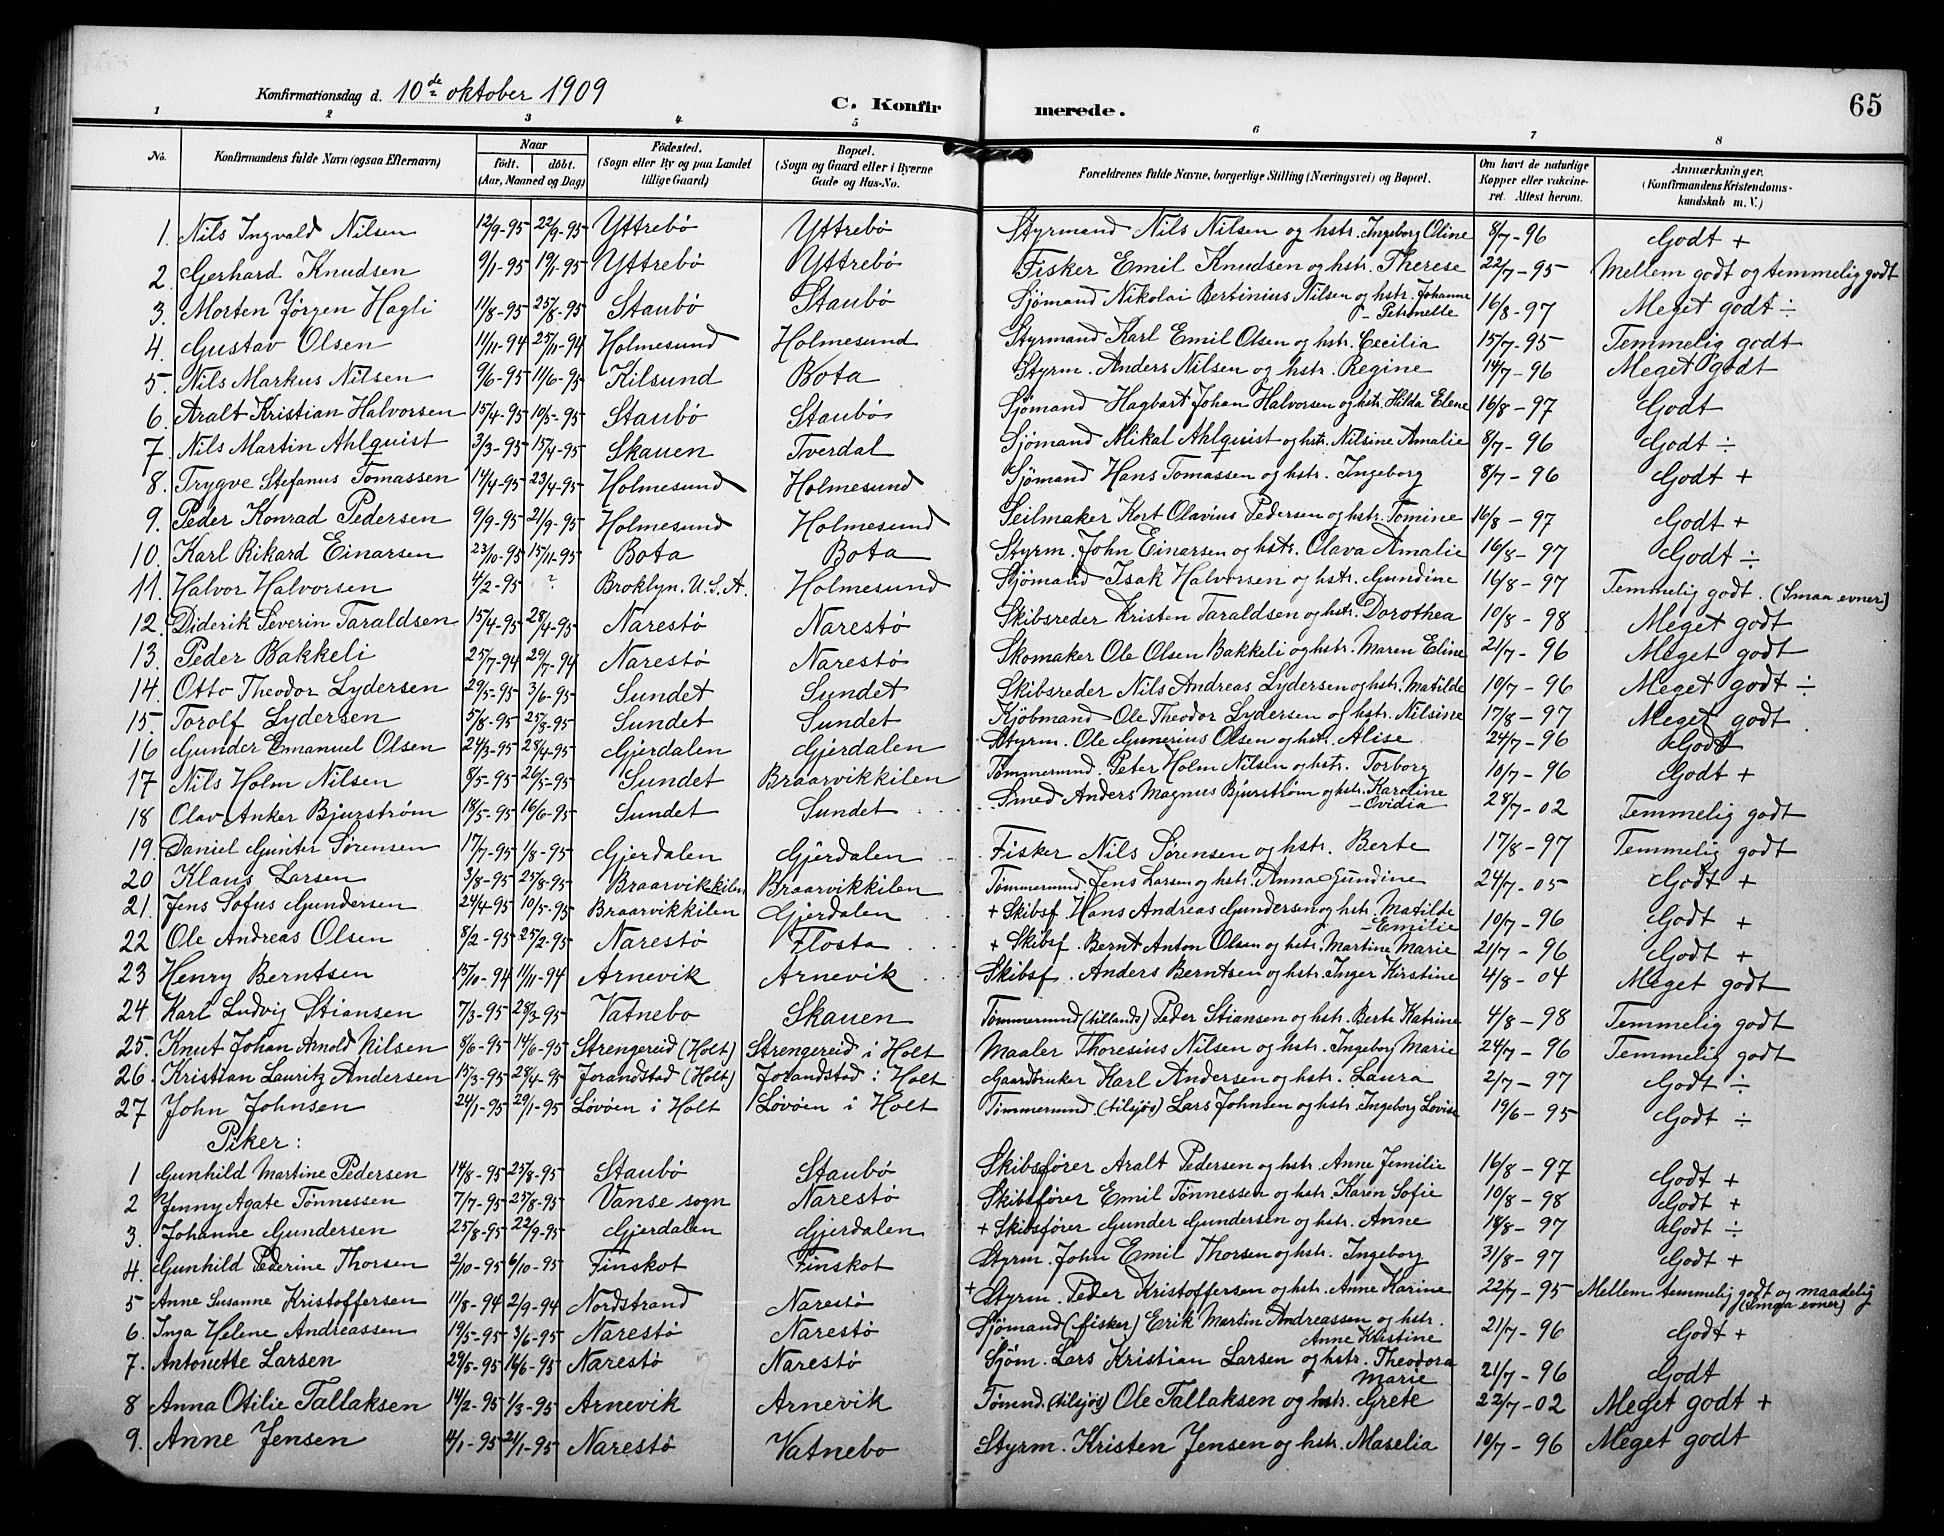 Konfirmationsdag d. 10de oktober 1909
C. Konfirmerede.
65
1 2 3 4 5 6 7 8
No. | Konfirmandens fulde Navn (ogsaa Efternavn) | Naar født. | døbt. (Aar, Maaned og Dag) | Fødested. (Sogn eller By og paa Landet tillige Gaard) | Bopæl. (Sogn og Gaard eller i Byerne Gade og Hus-No. | Forældrenes fulde Navne, borgerlige Stilling (Næringsvei) og Bopæl. | Om havt de naturlige Kopper eller vakcineret. Attest herom. | Anmærkninger. (Konfirmandens Kristendomskundskab m. V.)
1. Nils Ingvald Nilsen 12/9-95 22/9-95 Yttrebø Yttrebø Styrmand Nils Nilsen og hstr. Ingeborg Oline 8/7-96 Godt +
2. Gerhard Knudsen 9/1-95 19/1-95 Yttrebø Yttrebø Fisker Emil Knudsen og hstr. Therese 22/7-95 Mellem godt og temmelig godt
3. Morten Jørgen Hagli 11/8-95 25/8-95 Staubø Staubø Sjømand Nikolai Bertinius Nilsen og hstr. Johanne Petronelle 16/8-97 Meget godt ÷
4. Gustav Olsen 11/11-94 25/11-94 Holmesund Holmesund Styrmand Karl Emil Olsen og hstr. Cecilia 15/7-95 Temmelig godt
5. Nils Markus Nilsen 9/6-95 11/6-95 Kilsund Bota Styrm. Anders Nilsen og hstr. Regine 14/7-96 Meget godt
6. Aralt Kristian Halvorsen 15/4-95 10/5-95 Staubø Staubø Sjømand Hagbart Johan Halvorsen og hstr. Hilda Elene 16/8-97 Godt
7. Nils Martin Ahlquist 3/3-95 15/4-95 Skauen Tverdal Sjømand Mikal Ahlquist og hstr. Nilsine Amalie 8/7-96 Godt ÷
8. Trygve Stefanus Tomassen 14/4-95 23/4-95 Holmesund Holmesund Sjømand Hans Tomassen og hstr. Ingeborg 8/7-96 Godt +
9. Peder Konrad Pedersen 9/9-95 21/9-95 Holmesund Holmesund Seilmaker Kort Olavius Pedersen og hstr. Tomine 16/8-97 Godt +
10. Karl Rikard Einarsen 23/10-95 15/11-95 Bota Bota Styrm. John Einarsen og hstr. Olava Amalie 16/8-97 Godt ÷
11. Halvor Halvorsen 4/2-95 ? Broklyn. U.S.A. Holmesund Sjømand Isak Halvorsen og hstr. Gundine 16/8-97 Temmelig godt. (Smaa evner)
12. Diderik Severin Taraldsen 15/4-95 28/4-95 Narestø Narestø Skibsreder Kristen Taraldsen og hstr. Dorothea 10/8-98 Meget godt
13. Peder Bakkeli 25/7-94 29/7-94 Narestø Narestø Skomaker Ole Olsen Bakkeli og hstr. Maren Eline 21/7-96 Meget godt
14. Otto Theodor Lydersen 29/5-95 3/6-95 Sundet Sundet Skibsreder Nils Andreas Lydersen og hstr. Matilde 10/7-96 Meget godt ÷
15. Torolf Lydersen 5/8-95 25/8-95 Sundet Sundet Kjøbmand Ole Theodor Lydersen og hstr. Nilsine 17/8-97 Meget godt
16 Gunder Emanuel Olsen 24/3-95 28/4-95 Gjerdalen Gjerdalen Styrm. Ole Gunerius Olsen og hstr. Alise. 24/7-96 Godt
17 Nils Holm Nilsen 8/5-95 26/5-95 Sundet Braarvikkilen Tømmermnd. Peter Holm Nilsen og hstr. Torborg 10/7-96 Godt +
18 Olav Anker Bjurstrøm 18/5-95 16/6-95 Sundet Sundet Smed Anders Magnus Bjurstrøm og hstr. Karoline Ovidia 28/7-02 Temmelig godt
19. Daniel Gunter Sørensen 17/7-95 1/8-95 Gjerdalen Gjerdalen Fisker Nils Sørensen og hstr. Berte 17/8-97 Temmelig godt
20 Klaus Larsen 3/8-95 25/8-95 Braarvikkilen Braarvikkilen Tømmermnd. Jens Larsen og hstr. Anna Gundine 24/7-05 Godt +
21. Jens Sofus Gundersen 24/4-95 10/5-95 Braarvikkilen Gjerdalen + Skibsf. Hans Andreas Gundersen og hstr. Matilde Emilie 10/7-96 Godt +
22 Ole Andreas Olsen 8/2-95 25/2-95 Narestø Flosta + Skibsf. Bernt Anton Olsen og hstr. Martine Marie 21/7-96 Godt +
23 Henry Berntsen 15/10-94 11/11-94 Arnevik Arnevik Skibsf. Anders Berntsen og hstr. Inger Kirstine 4/8-04 Meget godt
24. Karl Ludvig Stiansen 7/3-95 28/3-95 Vatnebo Skauen Tømmermnd (tillands) Peder Stiansen og hstr. Berte Katrine 4/8-98 Temmelig godt
25. Knut Johan Arnold Nilsen 8/6-95 14/6-95 Strengereid (Holt) Strengereid i Holt Maaler Thoresius Nilsen og hstr. Ingeborg Marie 24/7-96 Temmelig godt
26 Kristian Lauritz Andersen 15/3-95 28/4-95 Jorandstad (Holt) Jorandstad i Holt Gaardbruker Karl Andersen og hstr. Laura 2/7-97 Godt ÷
27 John Johnsen 24/1-95 29/1-95 Løvøen i Holt Løvøen i Holt Tømmermnd. (tilsjøs) Lars Johnsen og hstr. Ingeborg Lovise 19/6-95 Godt ÷
Piker:
1 Gunhild Martine Pedersen 14/8-95 25/8-95 Staubø Staubø Skibsfører Aralt Pedersen og hstr. Anne Jemilie 16/8-97 Godt +
2 Jenny Agate Tønnessen 7/7-95 25/8-95 Vanse sogn Narestø Skibsfører Emil Tønnessen og hstr. Karen Sofie 10/8-98 Godt +
3. Johanne Gundersen 25/8-95 22/9-95 Gjerdalen Gjerdalen + Skibsfører Gunder Gundersen og hstr. Anne 18/8-97 Godt ÷
4 Gunhild Pederine Thorsen 2/10-95 6/10-95 Finskot Finskot Styrm. John Emil Thorsen og hstr. Ingeborg 31/8-97 Godt +
5 Anne Susanne Kristoffersen 11/8-94 2/9-94 Nordstrand Narestø + Styrm. Peder Kristoffersen og hstr. Anne Karine 22/7-95 Mellem temmelig godt og maadelig (Smaa evner)
6. Inga Helene Andreassen 19/5-95 3/6-95 Narestø Narestø Sjømand (fisker) Erik Martin Andreassen og hstr. Anne Kristine 21/7-96 Godt +
7. Antonette Larsen 29/5-95 16/6-95 Narestø Narestø Sjøm. Lars Kristian Larsen og hstr. Theodora Marie 21/7-96 Godt
8 Anna Otilie Tallaksen 14/2-95 1/3-95 Arnevik Arnevik Tømmd. (tilsjøs) Ole Tallaksen og hstr. Grete 22/7-02 Meget godt +
9. Anne Jensen 4/1-95 21/1-95 Narestø Vatnebo Styrm. Kristen Jensen og hstr. Maselia 10/7-96 Meget godt